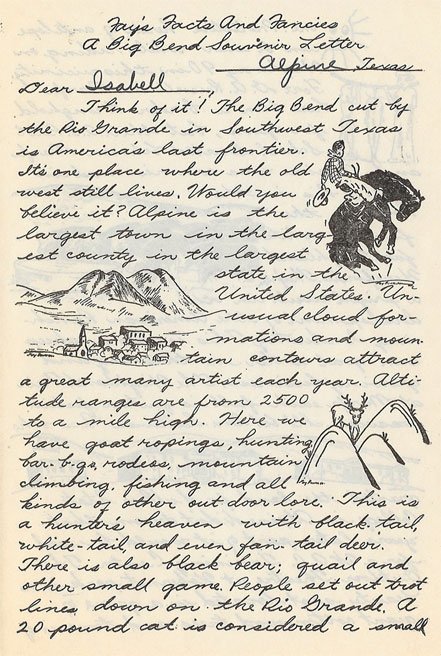 Fay's Facts And Fancies
A Big Bend Souvenir Letter
Alpine, Texas
Dear Isabell,
Think of it! The Big Bend cut by
the Rio Grande in Southwest Texas
is America's last frontier.
It's one place where the old
west still lives. Would you
believe it? Alpine is the
largest town in the larg
est county in the largest
state in the
United States. Un-
usual cloud for-
mations and moun-
tain contours attract
a great many artist each year. Alti-
tude ranges are from 2500
to a mile high. Here we
have goat ropings, hunting,
bar-b-qs, rodeos, mountain
climbing, fishing and all
kinds of other out door lore. This is
a hunter's heaven with black-tail,
white-tail, and even fan-tail deer.
There is also black bear; quail and
other small game. People set out trot
lines down on the Rio Grande. A
20 pound cat is considered a small